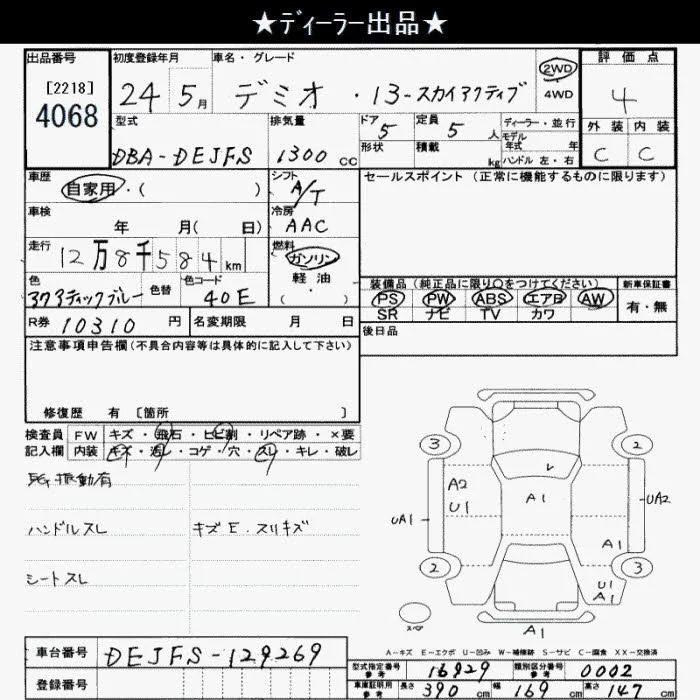 ★ディーラー出品★
出品番号 初度登録年月 車名・グレード 評価点
[2218]
4068
24 5月 デミオ・13-スカイアクティブ 2WD 4WD 4
型式 排気量 ドア 定員 ディーラー・並行 外装 内装
5 5人 モデル年式 年
DBA-DEJFS 1300cc 形状 積載 kg ハンドル 左・右 C C
車歴 シフト セールスポイント(正常に機能するものに限ります)
自家用・( ) A/T
車検 冷房
年 月( 日) AAC
走行 燃料
12万8千584km ガソリン
軽油
色 色替 色コード ・( ) 装備品(純正品に限り○をつけてください) 新車保証書
アクアティックブルー 40E PS PW ABS エアB AW 有・無
SR ナビ TV カワ
R券 10310円 名変期限 月 日 後日品
注意事項申告欄(不具合内容等は具体的に記入して下さい)
修復歴 有 [箇所 ]
検査員 FW キズ・飛石・ヒビ割・リペア跡・×要
記入欄 内装 キズ・汚レ・コゲ・穴・スレ・キレ・破レ
振動有
ハンドルスレ キズE.スリキズ
シートスレ
3 2
A2
U1 A1 UA2
UA1
A1
2 3
U1
A1
スペア
A1
A-キズ E-エクボ U-凹み W-補修跡 S-サビ C-腐食 XX-交換済
車台番号 DEJFS-129269
登録番号
型式指定番号 参考 16929 類別区分番号 参考 0002
車庫証明用 参考 長さ 390cm 幅 169cm 高さ 147cm